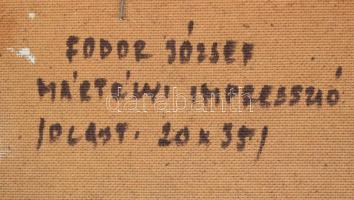 FODOR JÓZSEF
MÁRTÉLYI IMPRESSZIÓ
/OLAJT. 20 x 35/
darabanth